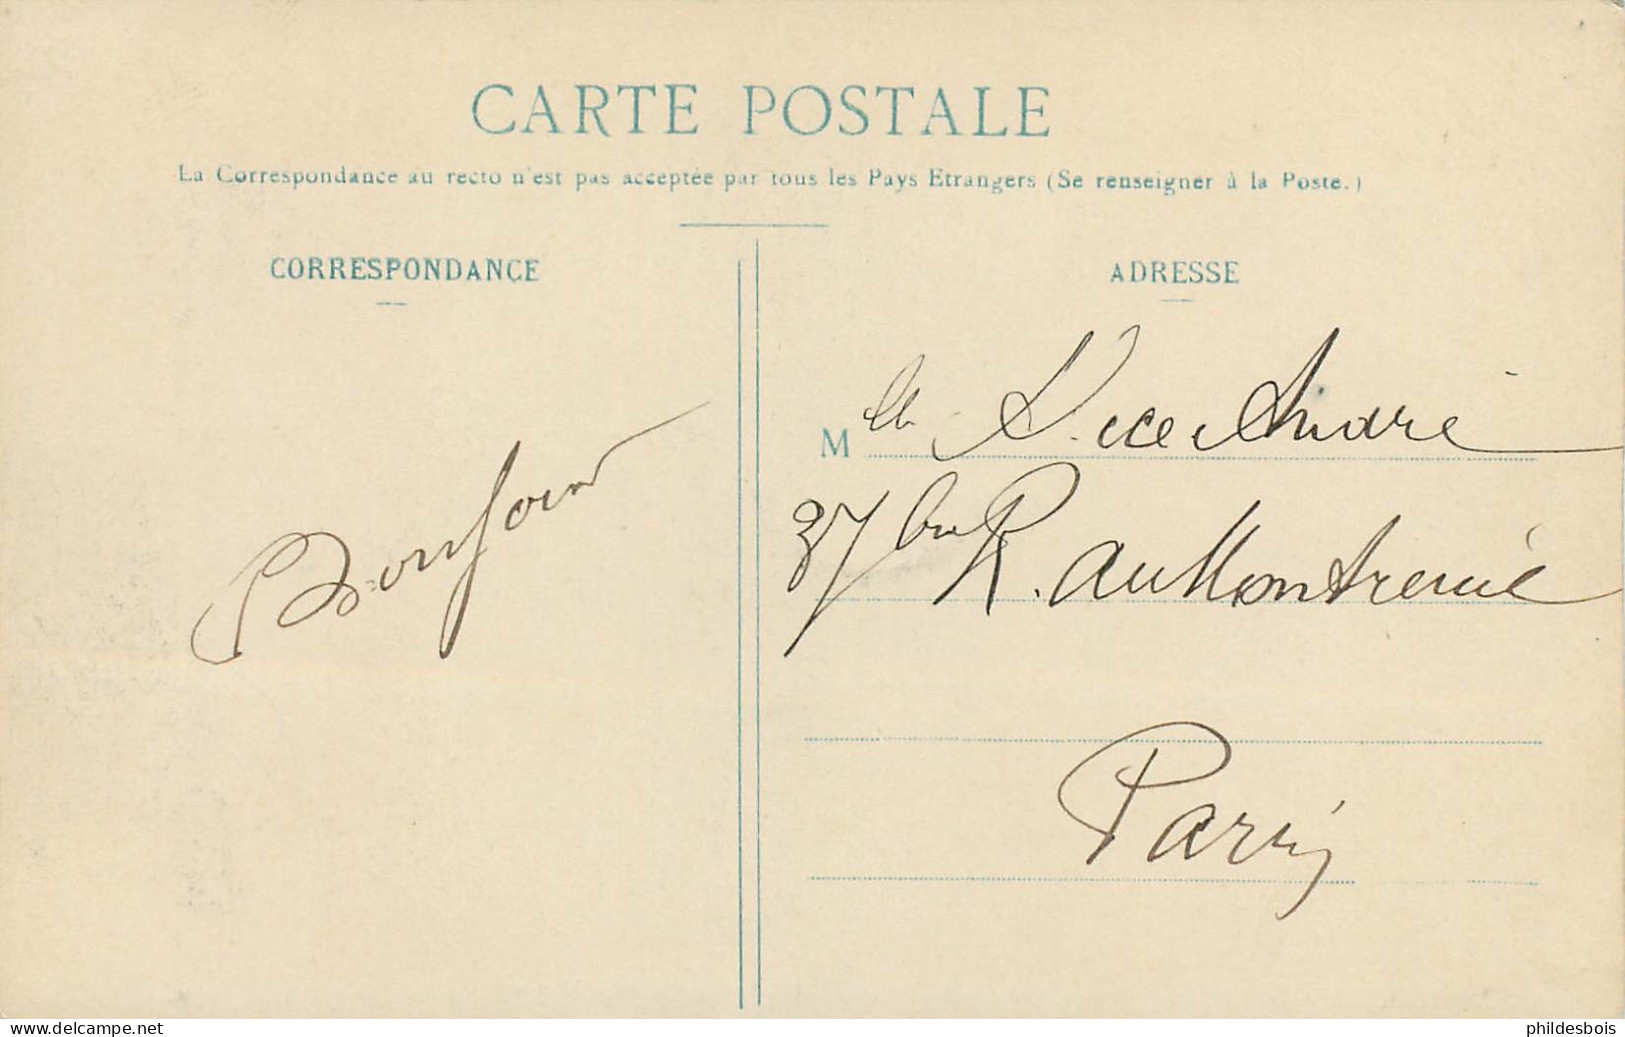 CARTE POSTALE
La Correspondance au recto n'est pas acceptée par tous les Pays Etrangers (Se renseigner à la Poste.)
CORRESPONDANCE
ADRESSE
Mlle André
37 bis R.
Bonjour
Paris
www.delcampe.net
phildesbois